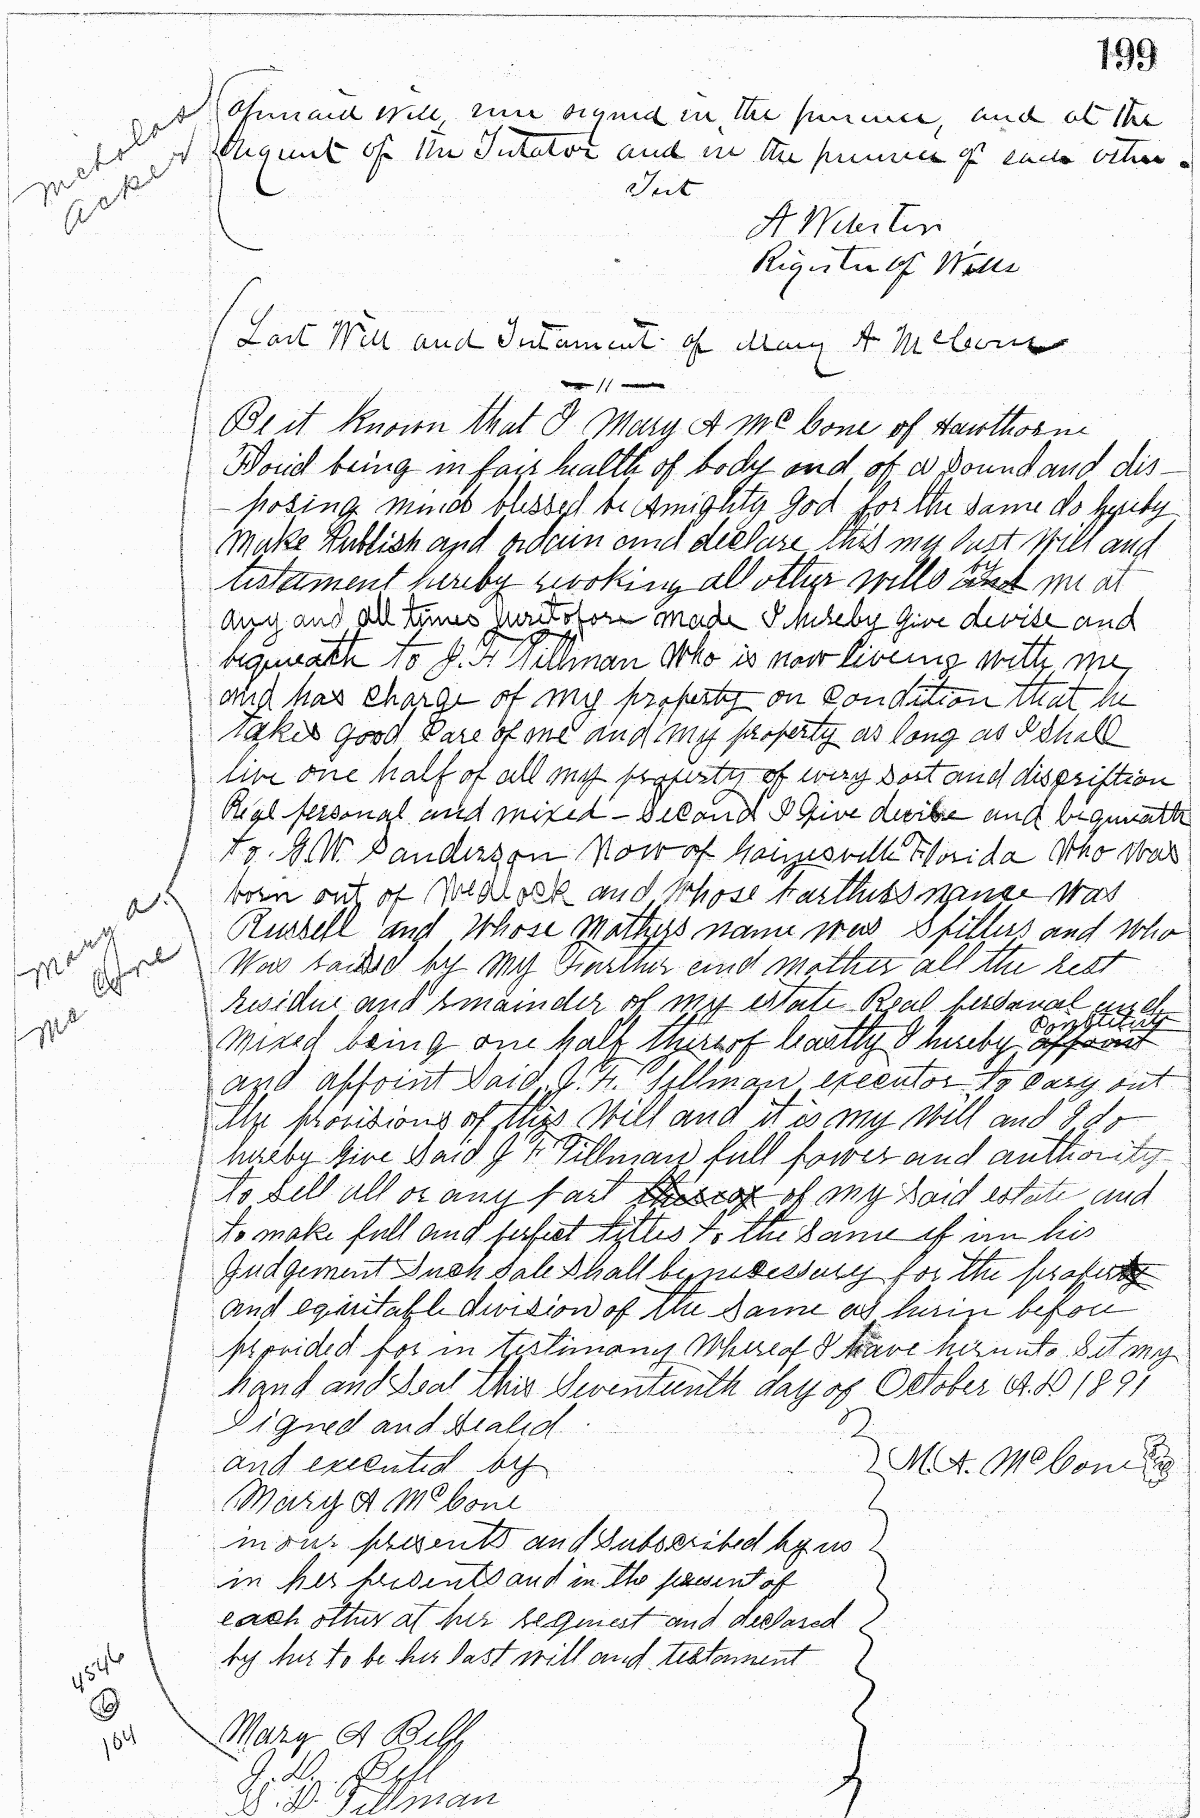 199
Nicholas
Acker
aforesaid Will, were signed in the presence, and at the
Request of the Testator and in the presence of each other.
Test
A Webster
Register of Wills
Last Will and Testament of Mary A McCone
— 11 —
Be it known that I Mary A McCone of Hawthorne
Florid being in fair health of body and of a Sound and dis-
-posing minds blessed be Amighty God for the same do hereby
Make Publish and ordain and declare this my last Will and
testament hereby revoking all other wills by me at
any and all times heretofore made I hereby Give devise and
bequeath to J. F. Tillman Who is now liveing with me
and has charge of my property on Condition that he
takes good Care of me and my property as long as I Shall
live one half of all my property of every Sort and discription
Real personal and mixed - Second I Give devise and bequeath
to G.W. Sanderson Now of Gainesville Florida Who was
born out of Wedlock and whose Farthers name was
Russell and Whose Mothers name was Spillers and who
Was raised by My Farther and mother all the rest
residue and remainder of my estate Real personal and
Mixed being one half thereof leastly I hereby Constitute
Mary A.
Mc Cone
and appoint Said J. F. Tillman executor to cary out
the provisions of this Will and it is my Will and I do
hereby Give Said J F Tillman full power and authority
to Sell all or any part of my Said estate and
to make full and perfect titles to the Same if inn his
Judgement Such Sale Shall be necessary for the proper
and equitable division of the Same as herin before
provided for in testimony Whereof I have herunto Set my
hand and Seal this Seventeenth day of October A.D 1891
Signed and Sealed
and executed by
M. A. McCone
Mary A McCone
in our presents and Subscribed by us
in her presents and in the present of
each other at her request and declared
by her to be her last will and testament
4546
6
104
Mary A Bell
J. D. Bell
D. Tillman